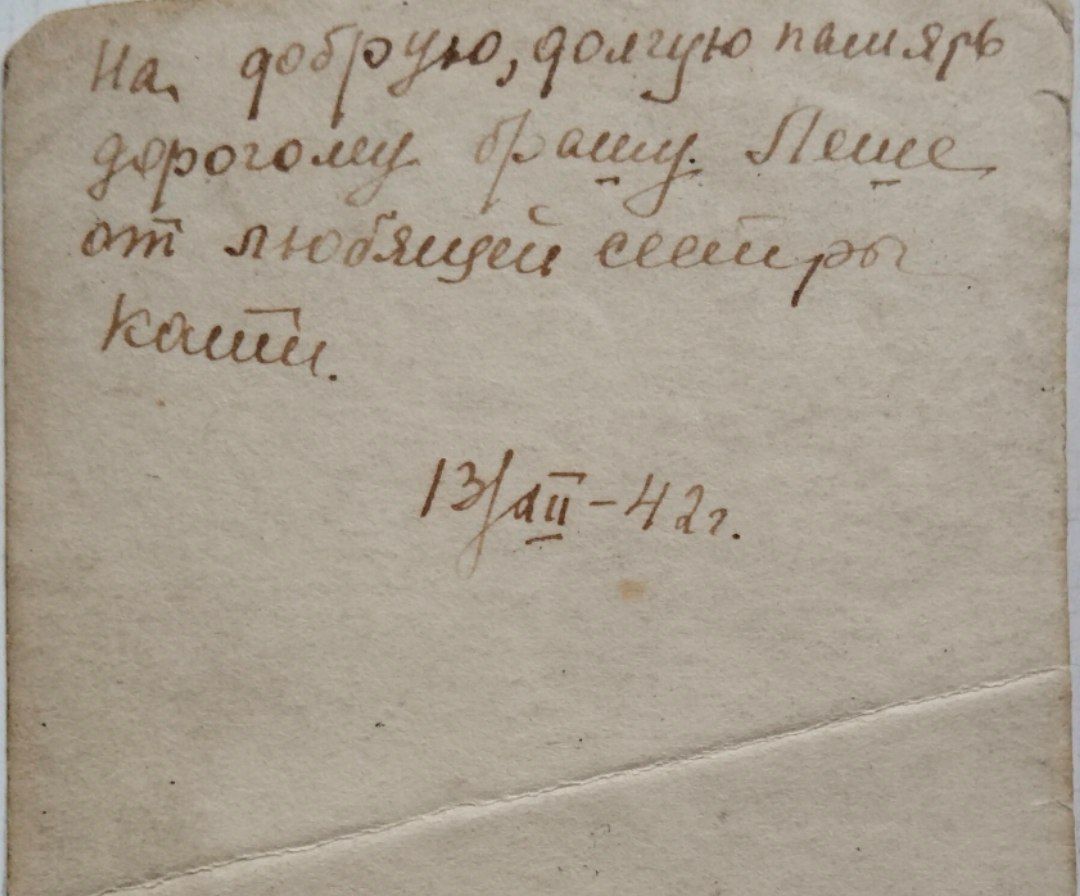 На добрую, долгую память
дорогому брату Леше
от любящей сестры
Кати.
13/XII-42г.